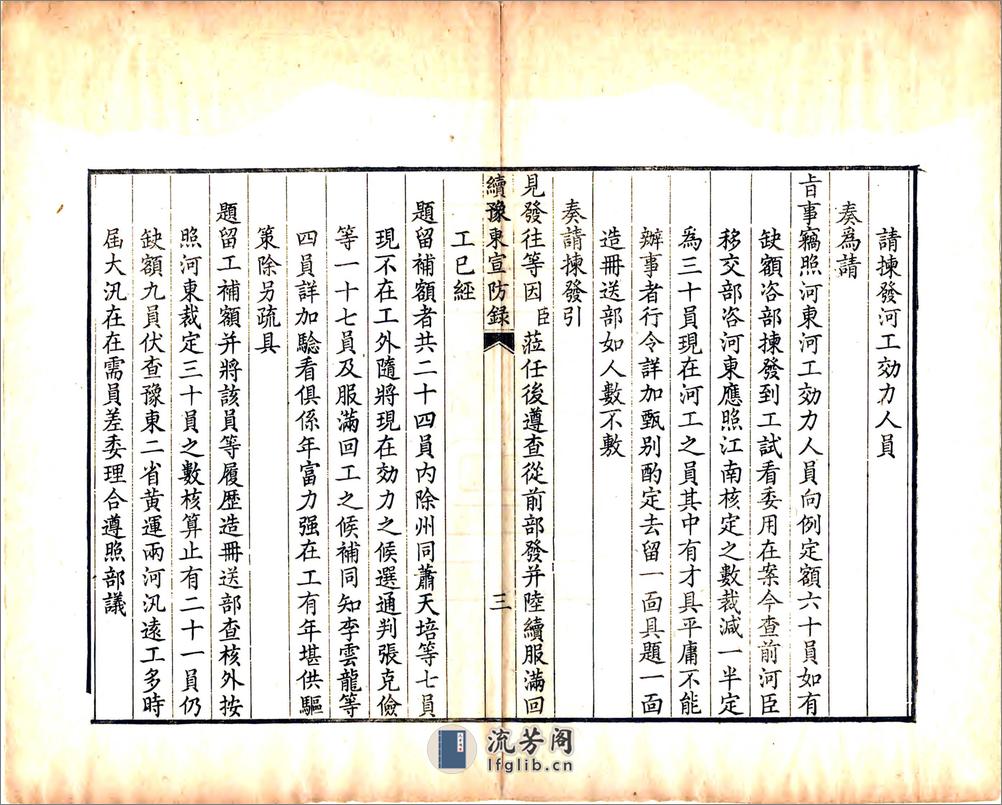 請揀發河工効力人員
奏為請
㫖事竊照河東河工効力人員向例定額六十員如有
缺額咨部揀發到工試看委用在案今查前河臣
移交部咨河東應照江南核定之數裁減一半定
為三十員現在河工之員其中有才具平庸不能
辦事者行令詳加甄别酌定去留一面具題一面
造冊送部如人數不敷
奏請揀發引
見發往等因臣蒞任後遵查從前部發并陸續服滿回
續豫東宣防録
三
工已經
題留補額者共二十四員内除州同蕭天培等七員
現不在工外隨將現在効力之候選通判張克儉
等一十七員及服滿回工之候補同知李雲龍等
四員詳加驗看俱係年富力强在工有年堪供驅
策除另疏具
題留工補額并將該員等履歷造冊送部查核外按
照河東裁定三十員之數核算止有二十一員仍
缺額九員伏查豫東二省黄運兩河汛遠工多時
屆大汛在在需員差委理合遵照部議
流芳阁
lfglib.cn